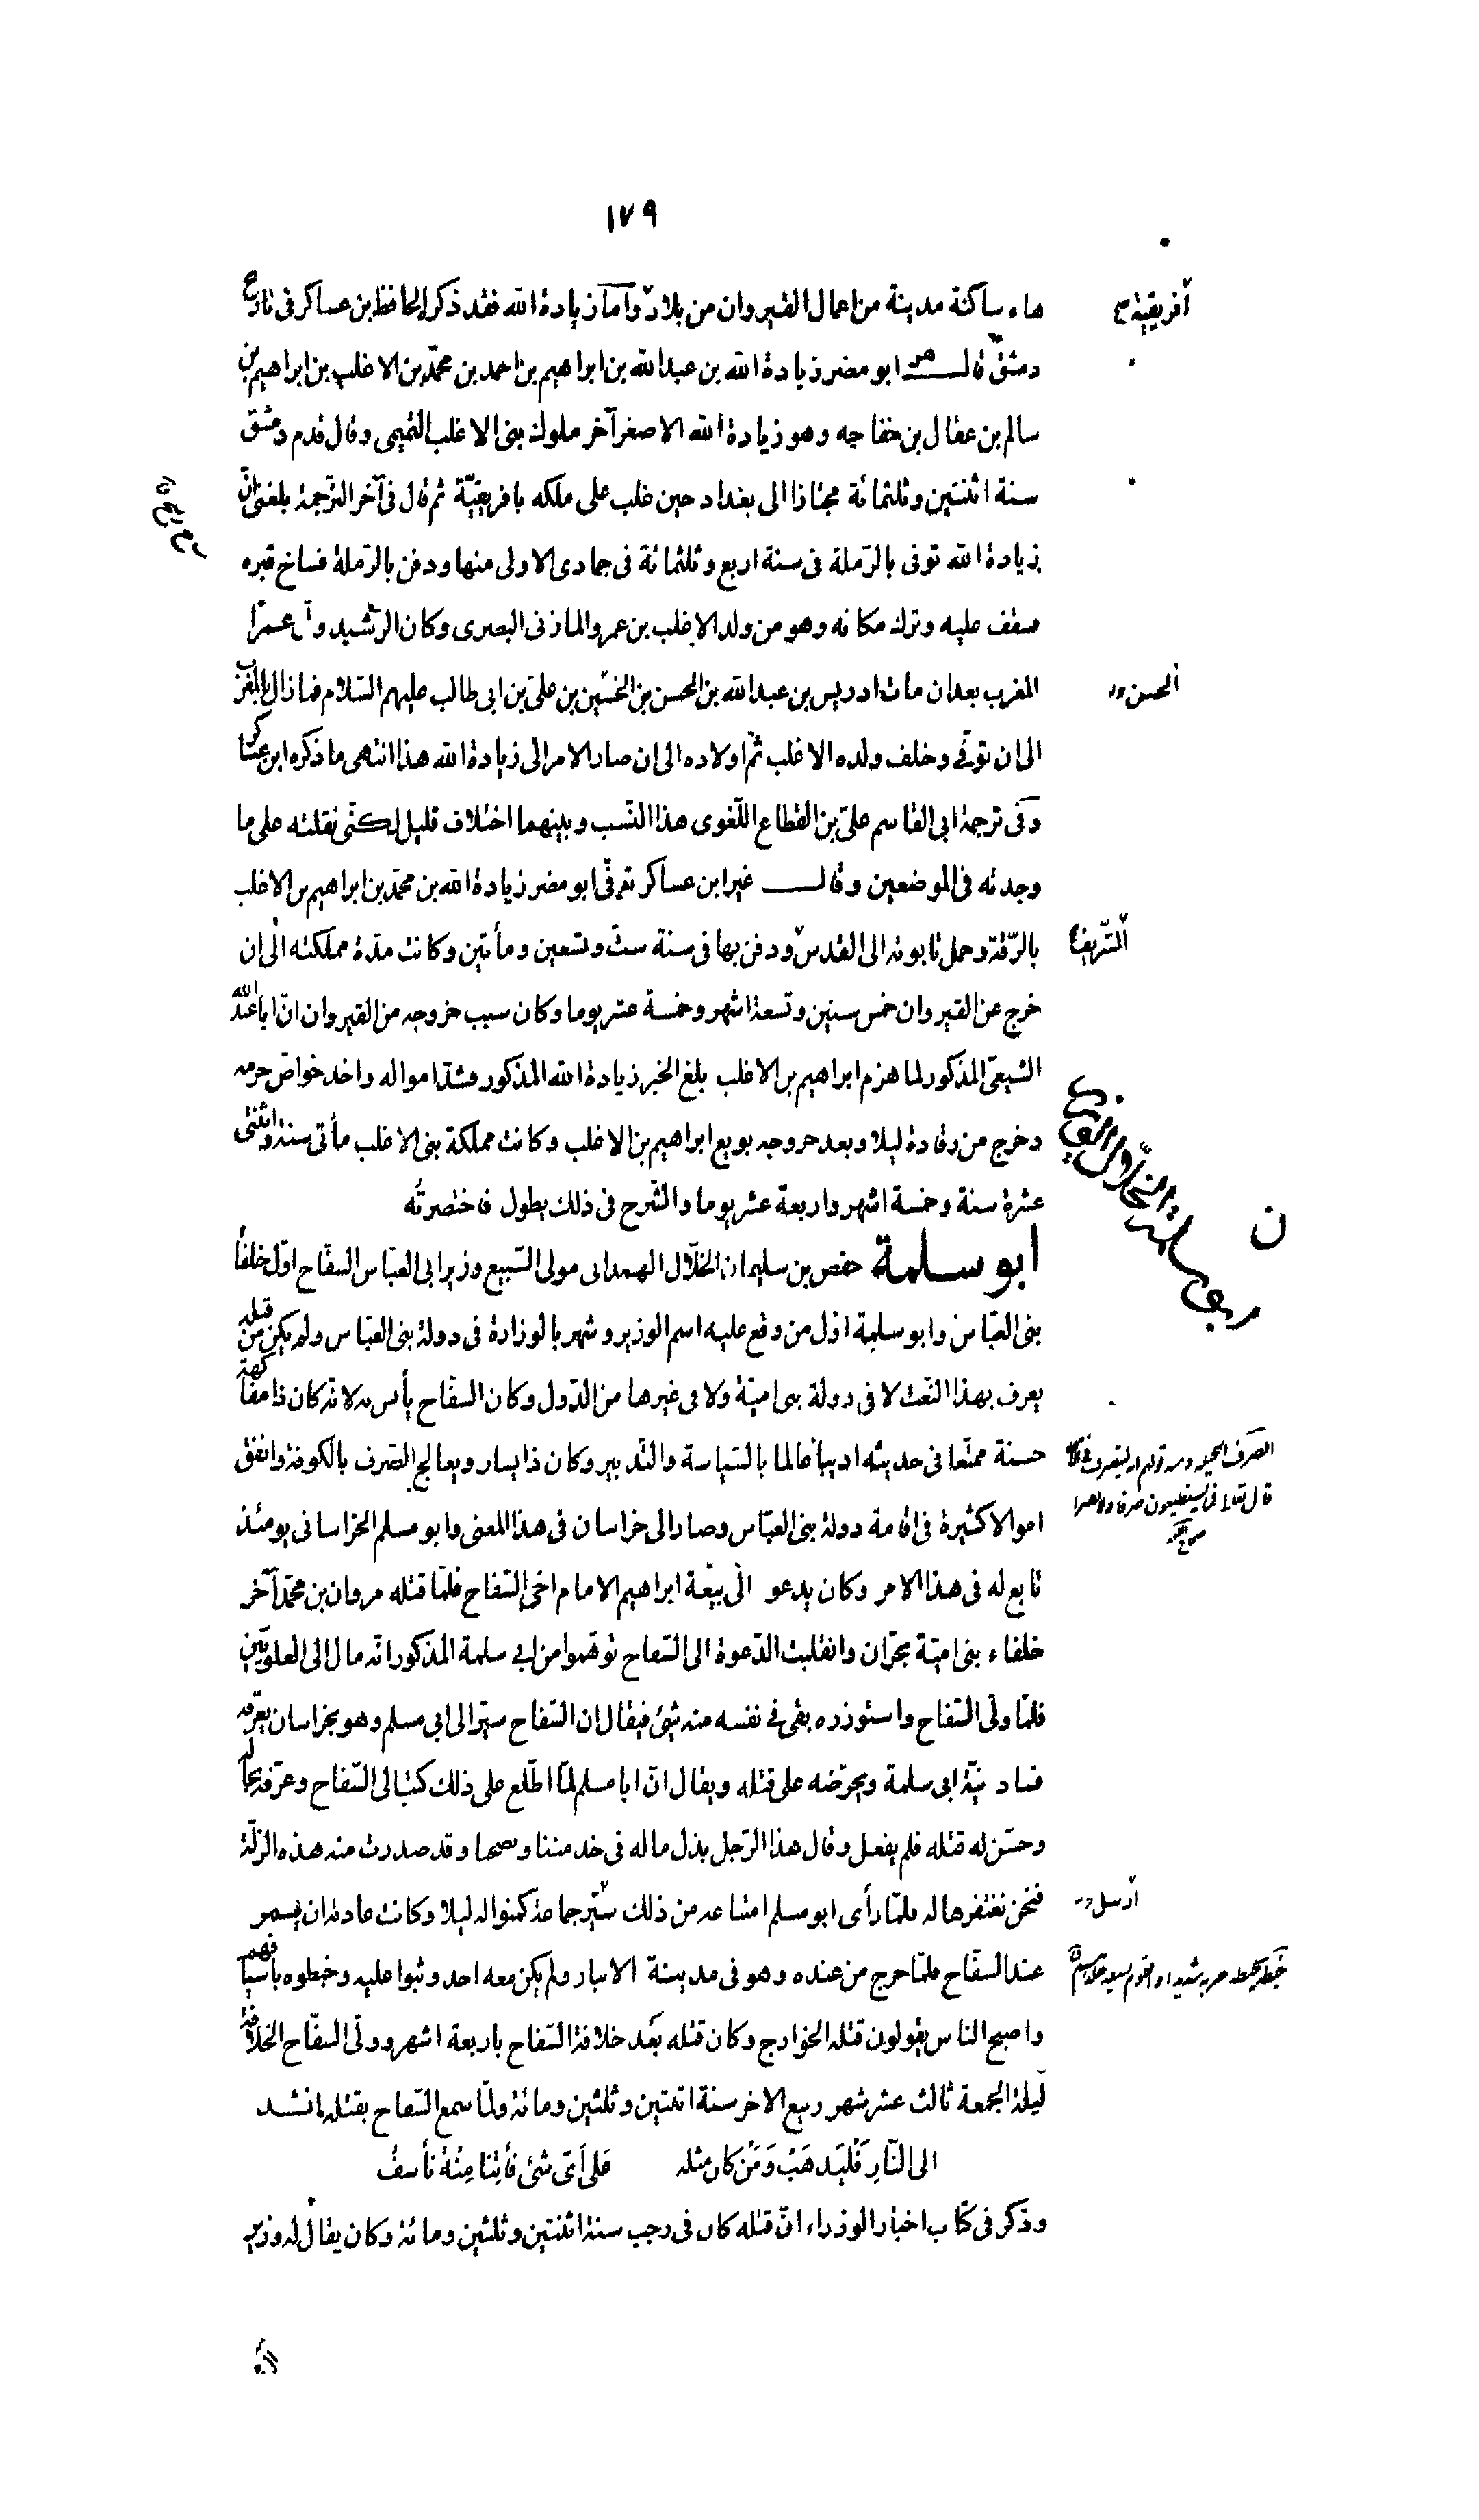 ١٧٩
هاء ساكنة مدينة من اعمال القيروان من بلاد وأما زيادة الله فقد ذكر الحافظ بن عساكر فى تاريخ
أفريقية
دمشق قال هو ابو مضر زيادة الله بن عبد الله بن ابراهيم بن احمد بن محمّد بن الاغلب بن ابراهيم بن
سالم بن عقال بن خفاجه وهو زيادة الله الاصغر آخر ملوك بنى الاغلب التميمى وقال قدم دمشق
سنة اثنتين وثلثمائة مجتازا الى بغداد حين غلب على ملكه بافريقيّة ثم قال فى آخر الترجمة بلغنى انّ
زيادة الله توفى بالرّملة فى سنة اربع وثلثمائة فى جمادى الاولى منها ودفن بالرّملة فساخ قبره
فسقف عليه وترك مكانه وهو من ولد الاغلب بن عمرو المازنى البصرى وكان الرّشيد ولّى عمرا
المغرب بعد ان مات ادريس بن عبد الله بن الحسن بن الحسين بن علىّ بن ابى طالب عليهم السّلام فما زال بالمغرب
الحسن
الى ان توفّى وخلف ولده الاغلب ثمّ اولاده الى ان صار الامر الى زيادة الله هذا انتهى ما ذكره ابن عساكر
وفى ترجمة ابى القاسم علىّ بن القطاع اللّغوى هذا النّسب وبينهما اختلاف قليل لكنّى نقلته على ما
وجدته فى الموضعين وقال غير ابن عساكر توفّى ابو مضر زيادة الله بن محمّد بن ابراهيم بن الاغلب
بالرّقة وحمل تابوته الى القدس ودفن بها فى سنة ستّ وتسعين ومأتين وكانت مدّة مملكته الى ان
الشّريف
خرج عن القيروان خمس سنين وتسعة اشهر وخمسة عشر يوما وكان سبب خروجه من القيروان انّ ابا عبد الله
الشيعىّ المذكور لما هزم ابراهيم بن الاغلب بلغ الخبر زيادة الله المذكور فشدّ امواله واخذ خواصّ حرمه
وخرج من رقادة ليلا وبعد خروجه بويع ابراهيم بن الاغلب وكانت مملكة بنى الاغلب مأتى سنة واثنتى
عشرة سنة وخمسة اشهر واربعة عشر يوما والشّرح فى ذلك يطول فاختصرتُه
ابو سلمة حفص بن سليمان الخلّال الهمدانى مولى السّبيع وزير ابى العبّاس السفّاح اوّل خلفاء
بنى العبّاس وابو سلمة اوّل من وقع عليه اسم الوزير وشهر بالوزارة فى دولة بنى العبّاس ولم يكن من قبله
يعرف بهذا النّعت لا فى دولة بنى اميّة ولا فى غيرها من الدّول وكان السفّاح يأنس به لانّه كان ذا مفاكهة
حسنة ممتعا فى حديثه اديبا عالما بالسّياسة والتّدبير وكان ذا يسار ويعالج الصّرف بالكوفة وانفق
اموالا كثيرة فى اقامة دولة بنى العبّاس وصار الى خراسان فى هذا المعنى وابو مسلم الخراسانى يومئذ
تابع له فى هذا الامر وكان يدعو الى بيعة ابراهيم الامام اخى السّفاح فلمّا قتله مروان بن محمّد آخر
خلفاء بنى اميّة بحرّان وانقلبت الدّعوة الى السّفاح توهّموا من ابى سلمة المذكور انّه مال الى العلويّين
فلمّا ولّى السّفاح واستوزره بقى فى نفسه منه شئ فيقال ان السّفاح سيّر الى ابى مسلم وهو بخراسان يعرّفه
فساد نيّة ابى سلمة ويحرّضه على قتله ويقال انّ ابا مسلم لمّا اطّلع على ذلك كتب الى السّفاح وعرّفه بحاله
وحسّن له قتله فلم يفعل وقال هذا الرّجل بذل ماله فى خدمتنا ونصحنا وقد صدرت منه هذه الزلّة
فنحن نغتفرها له فلمّا رأى ابو مسلم امتناعه من ذلك سيّر جماعة كمنوا له ليلا وكانت عادته ان يسمر
أرسل
عند السفّاح فلمّا خرج من عنده وهو فى مدينة الانبار ولم يكن معه احد وثبوا عليه وخبطوه باسيافهم
واصبح الناس يقولون قتله الخوارج وكان قتله بعد خلافة السّفاح باربعة اشهر وولّى السفّاح الخلافة
ليلة الجمعة ثالث عشر شهر ربيع الاخر سنة اثنتين وثلثين ومائة ولمّا سمع السّفاح بقتله انشد
الى النّارِ فَلْيَذهَبْ وَمَنْ كان مثله عَلى اَىّ شئ فأتنا مِنْهُ نأسفُ
وذكر فى كتاب اخبار الوزراء انّ قتله كان فى رجب سنة اثنتين وثلثين ومائة وكان يقال له وزير